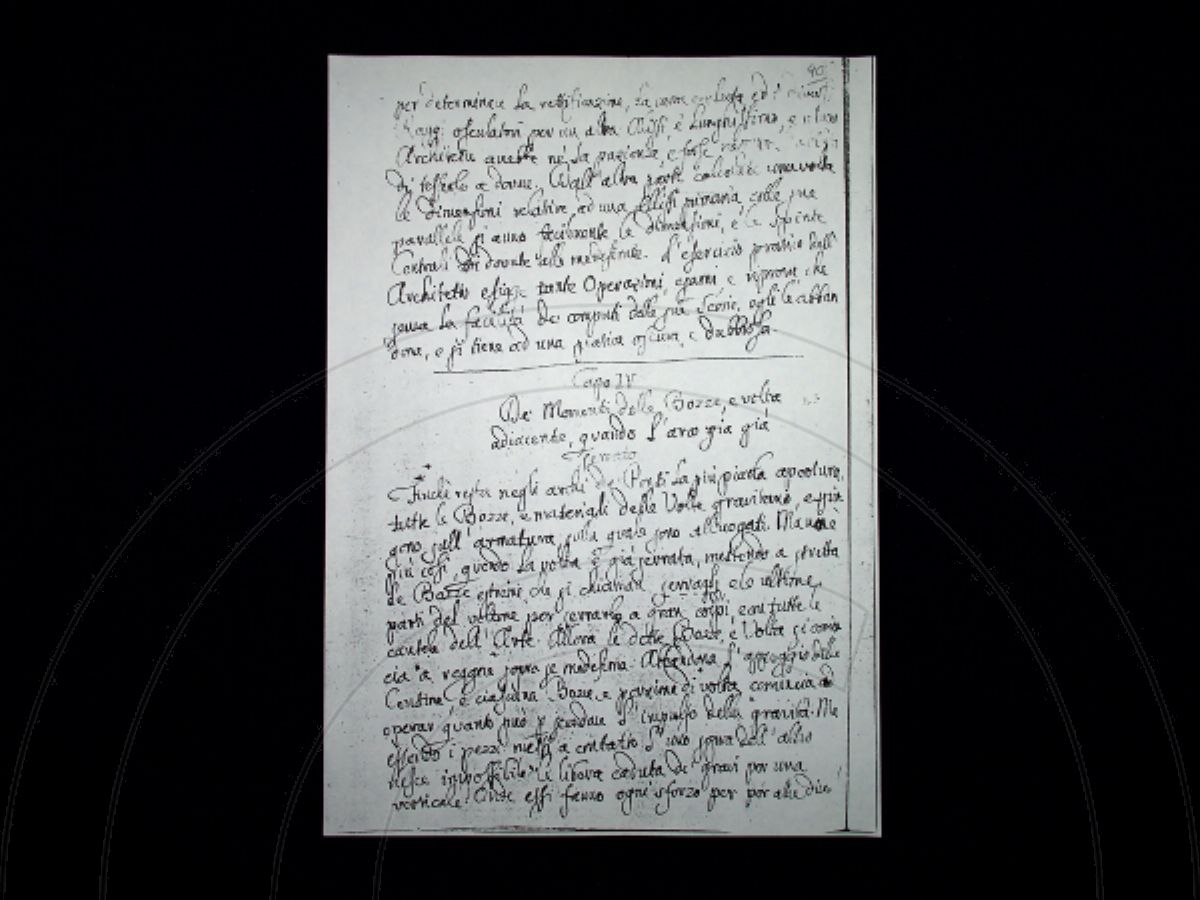 40
per determinare la rettificazione, la curva evoluta ed i
Raggi osculatori per un altra Elissi, è lunghissimo, e
Architetto avrebbe nè la pazienza, e forse
di tesserlo a dovere. Dall'altra parte calcolate una volta
le dimensioni relative ad una Ellissi primaria, colle sue
parallele si anno facilmente le dimensioni, e le spinte
Centrali
Architetto esigge tante Operazioni, esami, e riprove che
senza la facilità de computi delle sue Teorie, egli le abban
dona, e si tiene ad una pratica oscura, e dubbiosa.
Capo IV
De Momenti delle Bozze, e volta
adiacente, quando l'arco sia già
Serrato
Finchè resta negli archi de Ponti la più piccola apertura,
tutte le Bozze, e materiali delle Volte gravitano, e spin
gono sull'armatura, sulla quale sono allogati. Ma non è
più così, quando la volta è già serrata, mettendo a stretta
le Bozze estreme, che si chiamano serragli e le ultime
parti del voltone per serrarlo a gran colpi, e con tutte le
cautele dell'Arte. Allora le dette Bozze, e Volta si comin
cia a reggere sovra se medesima. Abbandona l'appoggio delle
Centine, e ciascuna Bozze, e porzione di volta comincia ad
operar quanto può secondo l'impulso della gravità. Ma
essendo i pezzi messi a contatto l'uno sovra dell'altro
riesce impossibile la libera caduta de gravi per una
verticale. Onde essi fanno ogni sforzo per